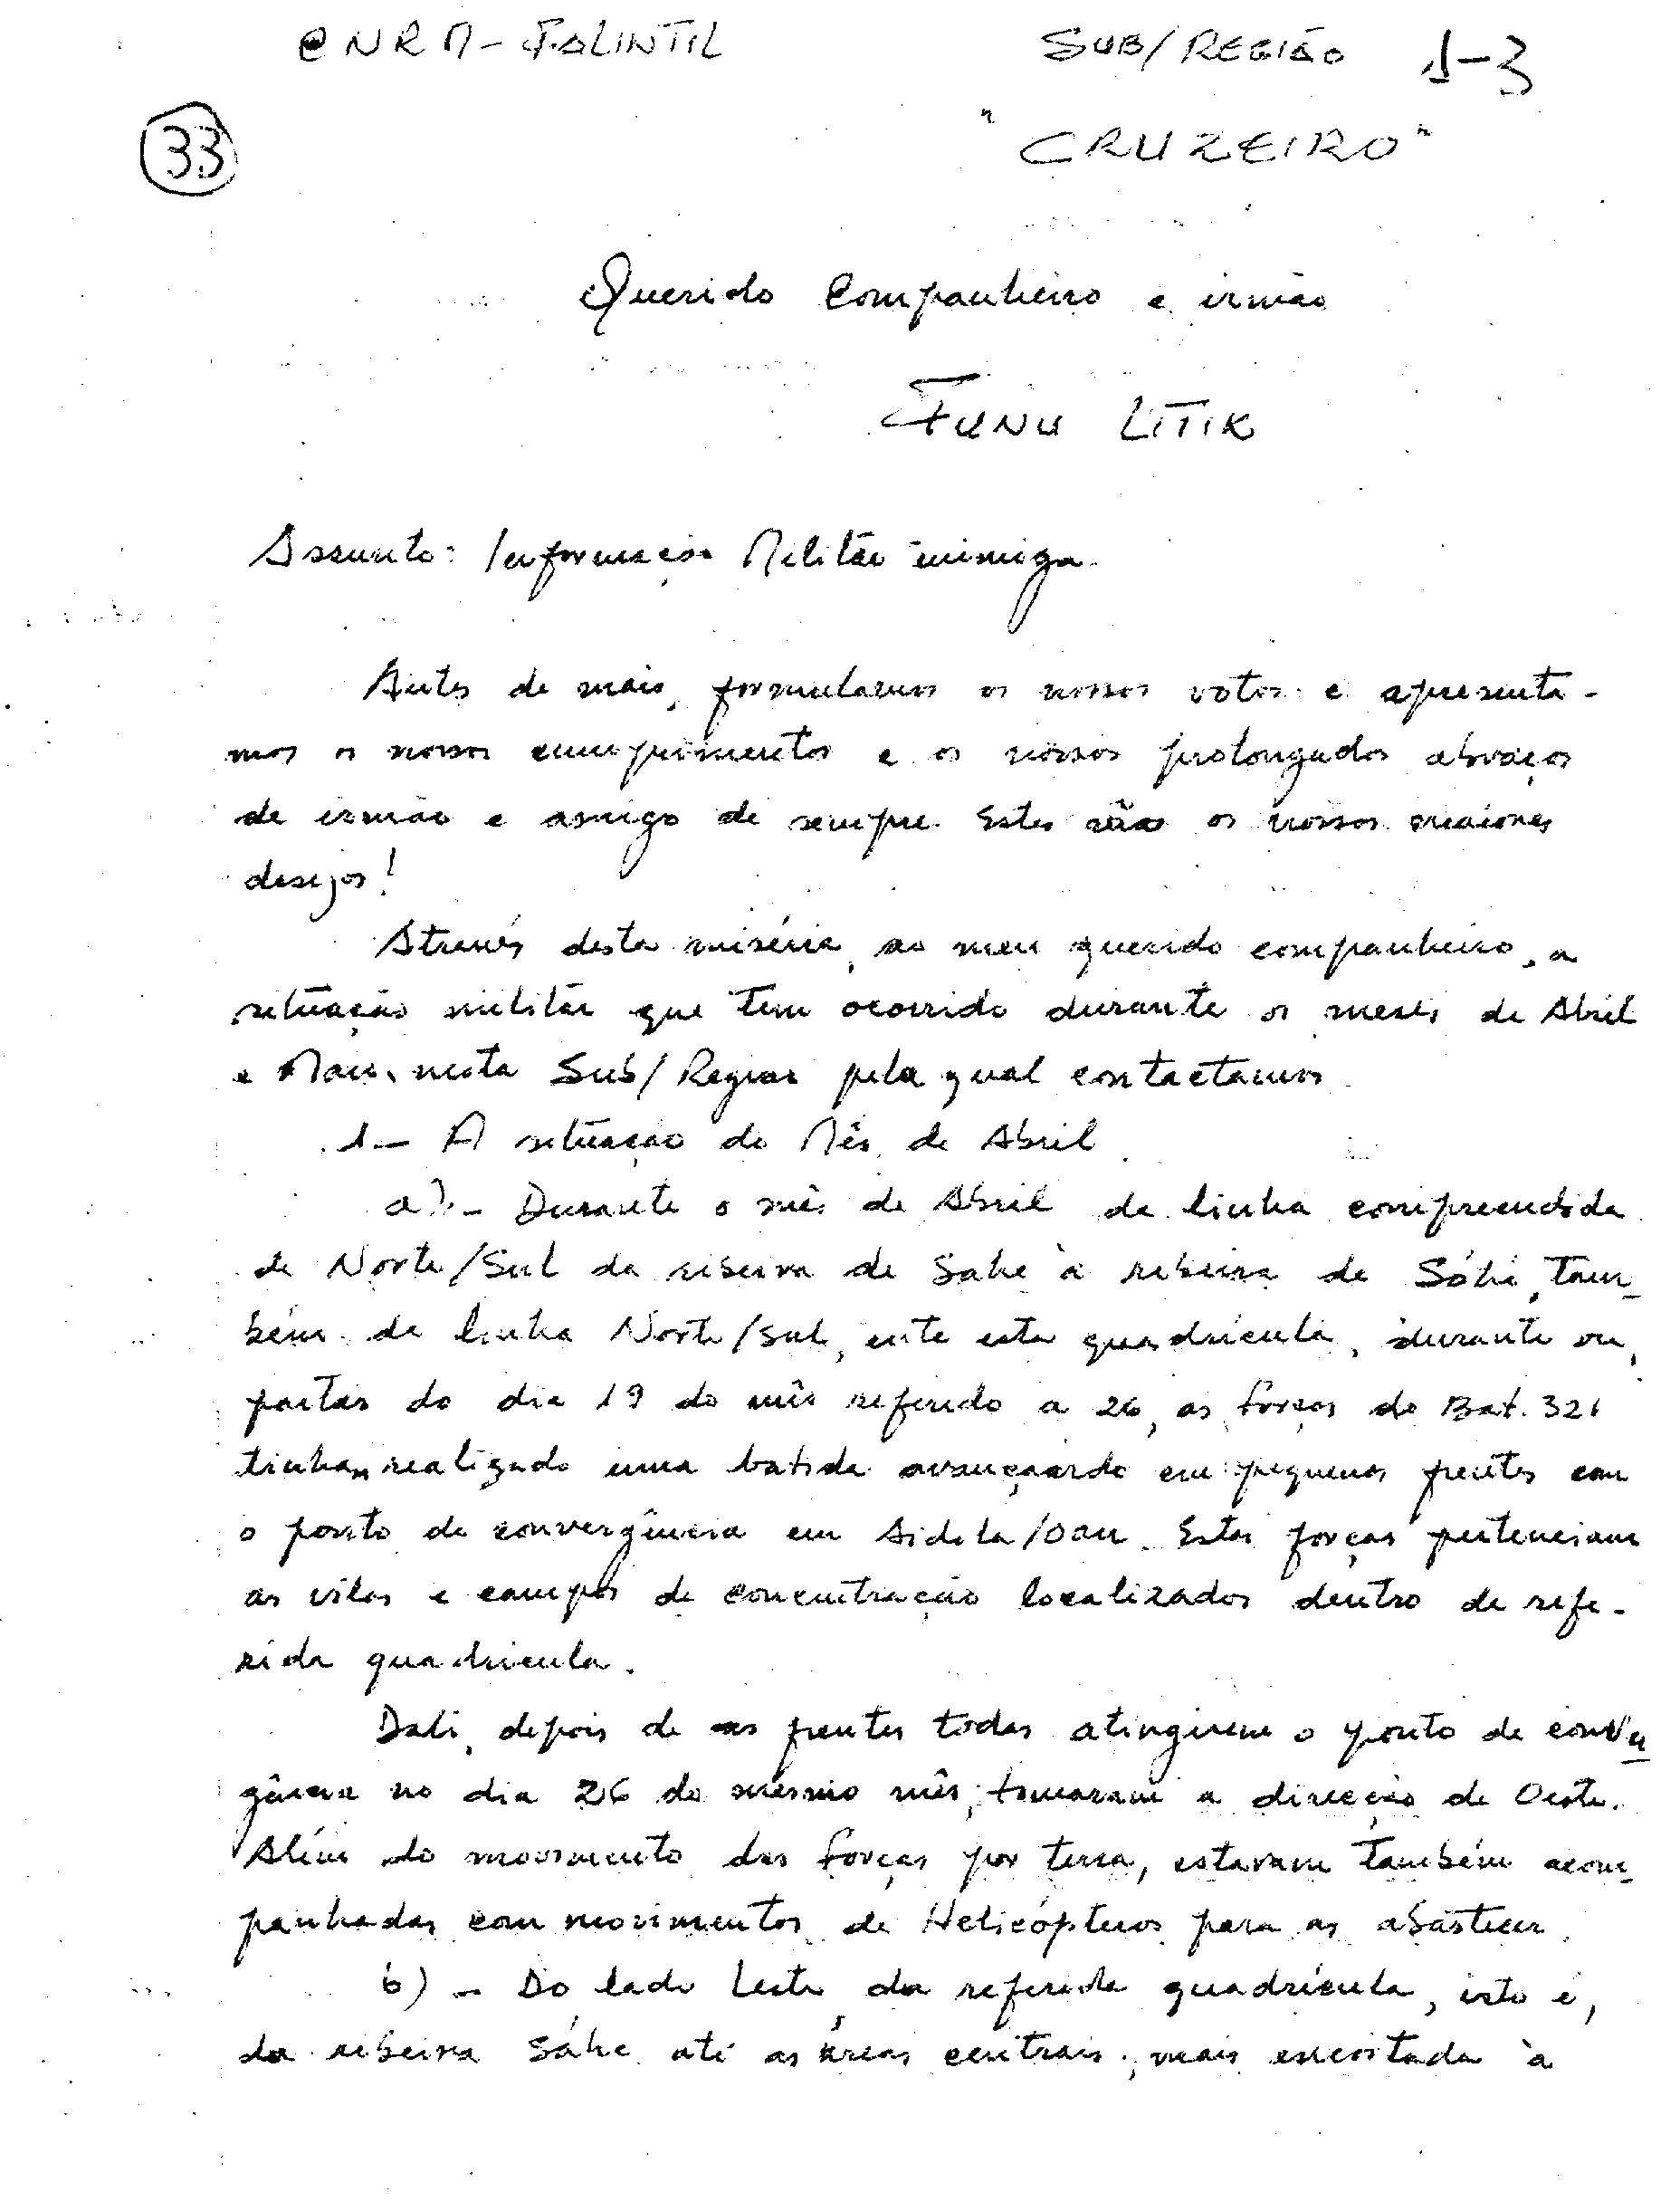 CNRM-FALINTIL SUB/REGIÃO 1-3
33 "CRUZEIRO"
Querido Companheiro e irmão
FUNU LITIK
Assunto: Informação Militar inimiga.
Antes de mais, formulamos os nossos votos e apresenta-
mos os nossos cumprimentos e os nossos prolongados abraços
de irmão e amigo de sempre. Estes são os nossos maiores
desejos!
Através desta miséria, ao meu querido companheiro, a
situação militar que tem ocorrido durante os meses de Abril
e Maio, nesta Sub/Região pela qual contactamos.
1- A situação do Mês de Abril.
a)- Durante o mês de Abril da linha compreendida
de Norte/Sul da ribeira de Sahe à ribeira de Sáhe, tam-
bém da linha Norte/sul, ente esta quadrícula, durante ou,
partas do dia 19 do mês referido a 26, as forças do Bat. 321
tinham realizado uma batida avançando em pequenas frentes com
o ponto de convergência em /Oan. Estas forças pertenciam
as vilas e campos de concentração localizados dentro de refe-
rida quadrícula.
Dali, depois de as frentes todas atingirem o ponto de conver
gência no dia 26 do mesmo mês, tomaram a direcção de Oeste.
Além do movimento das forças por terra, estavam também acom-
panhadas com movimentos de Helicópteros para as abastecer.
b) - Do lado Leste, da referida quadrícula, isto é,
da ribeira Sáhe até as áreas centrais, mais encostada à